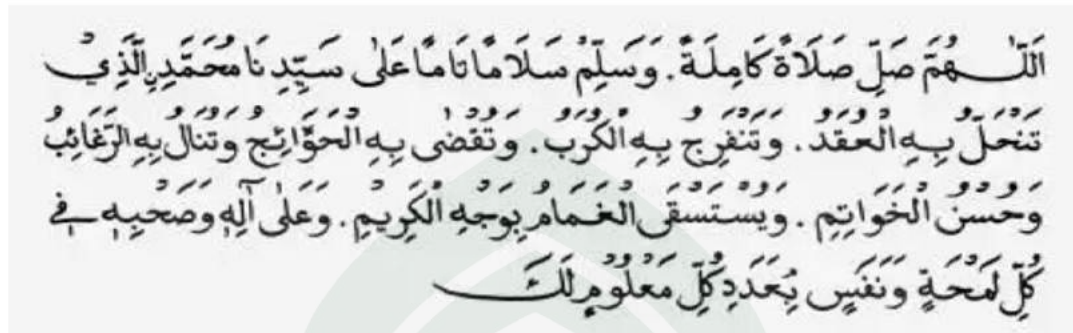 اَللّٰهُمَّ صَلِّ صَلَاةً كَامِلَةً. وَسَلِّمْ سَلَامًا تَامًا عَلٰى سَيِّدِنَا مُحَمَّدِنِ الَّذِيْ
تَنْحَلُّ بِهِ الْعُقَدُ. وَتَنْفَرِجُ بِهِ الْكُرَبُ. وَتُقْضٰى بِهِ الْحَوَّائِجُ وَتُنَالُ بِهِ الرَّغَائِبُ
وَحُسْنُ الْخَوَاتِمِ. وَيُسْتَسْقَى الْغَمَامُ بِوَجْهِهِ الْكَرِيمِ. وَعَلٰى آلِهٖ وَصَحْبِهٖ فِيْ
كُلِّ لَمْحَةٍ وَنَفَسٍ بِعَدَدِ كُلِّ مَعْلُوْمٍ لَكَ